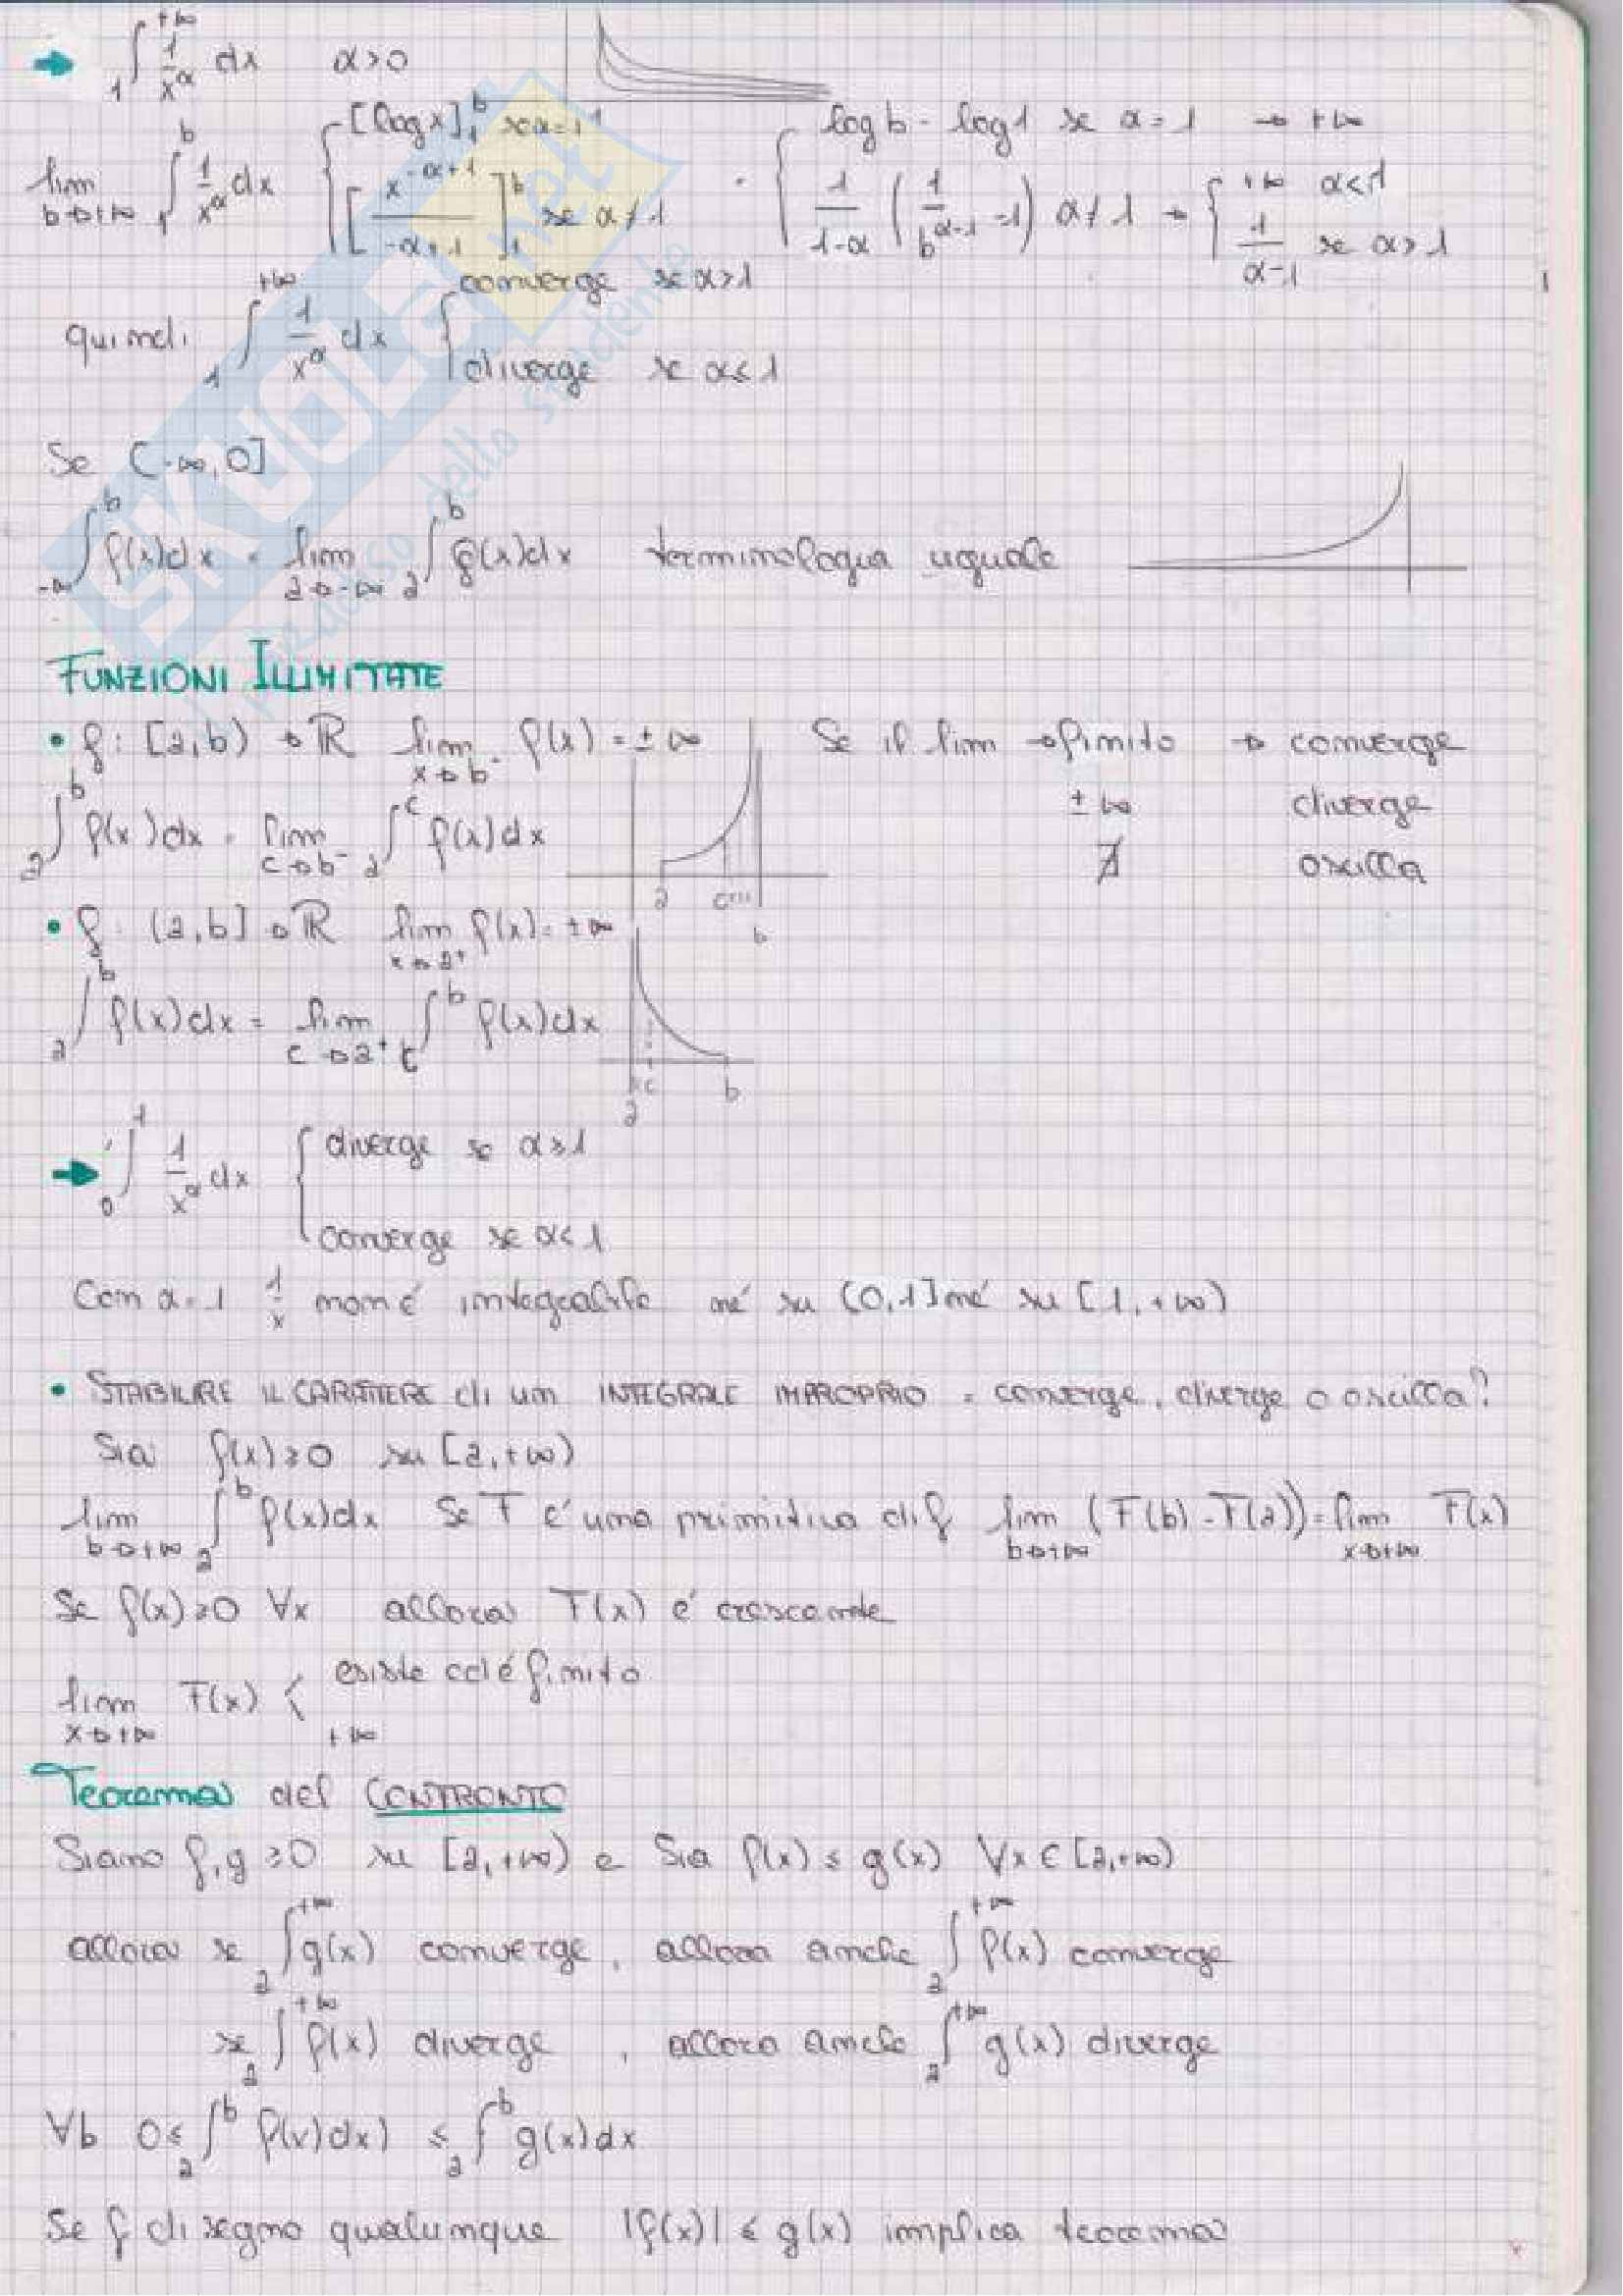 → ∫₁^{+∞} 1/x^α dx α>0
lim_{b→+∞} ∫₁^b 1/x^α dx { [log x]₁^b se α=1 ; [x^{-α+1}/(-α+1)]₁^b se α≠1 = { log b - log 1 se α=1 → +∞ ; 1/(1-α) (1/b^{α-1} -1) α≠1 → { +∞ α<1 ; 1/(α-1) se α>1
quindi ∫₁^{+∞} 1/x^α dx { converge se α>1 ; diverge se α≤1
Se (-∞,0]
∫_{-∞}^b f(x)dx = lim_{a→-∞} ∫_a^b f(x)dx terminologia uguale
FUNZIONI ILLIMITATE
• f: [a,b) → ℝ lim_{x→b⁻} f(x) = ±∞ Se il lim → finito → converge
±∞ diverge
∫_a^b f(x)dx = lim_{c→b⁻} ∫_a^c f(x)dx
∄ oscilla
a c b
• f: (a,b] → ℝ lim_{x→a⁺} f(x) = ±∞
∫_a^b f(x)dx = lim_{c→a⁺} ∫_c^b f(x)dx
a c b
→ ∫₀¹ 1/x^α dx { diverge se α≥1 ; converge se α<1
Con α=1 1/x non é integrabile né su (0,1] né su [1,+∞)
• STABILIRE IL CARATTERE di un INTEGRALE IMPROPRIO = converge, diverge o oscilla?
Sia f(x)≥0 su [a,+∞)
lim_{b→+∞} ∫_a^b f(x)dx Se F é una primitiva di f lim_{b→+∞} (F(b)-F(a)) = lim_{x→+∞} F(x)
Se f(x)≥0 ∀x allora F(x) é crescente
lim_{x→+∞} F(x) < esiste ed é finito
+∞
Teorema del CONFRONTO
Siano f,g ≥0 su [a,+∞) e Sia f(x) ≤ g(x) ∀x∈[a,+∞)
allora se ∫_a^{+∞} g(x) converge, allora anche ∫_a^{+∞} f(x) converge
se ∫_a^{+∞} f(x) diverge, allora anche ∫_a^{+∞} g(x) diverge
∀b 0≤ ∫_a^b f(x)dx) ≤ ∫_a^b g(x)dx
Se f di segno qualunque |f(x)| ≤ g(x) implica teorema
SKUOLA.net
dello studente